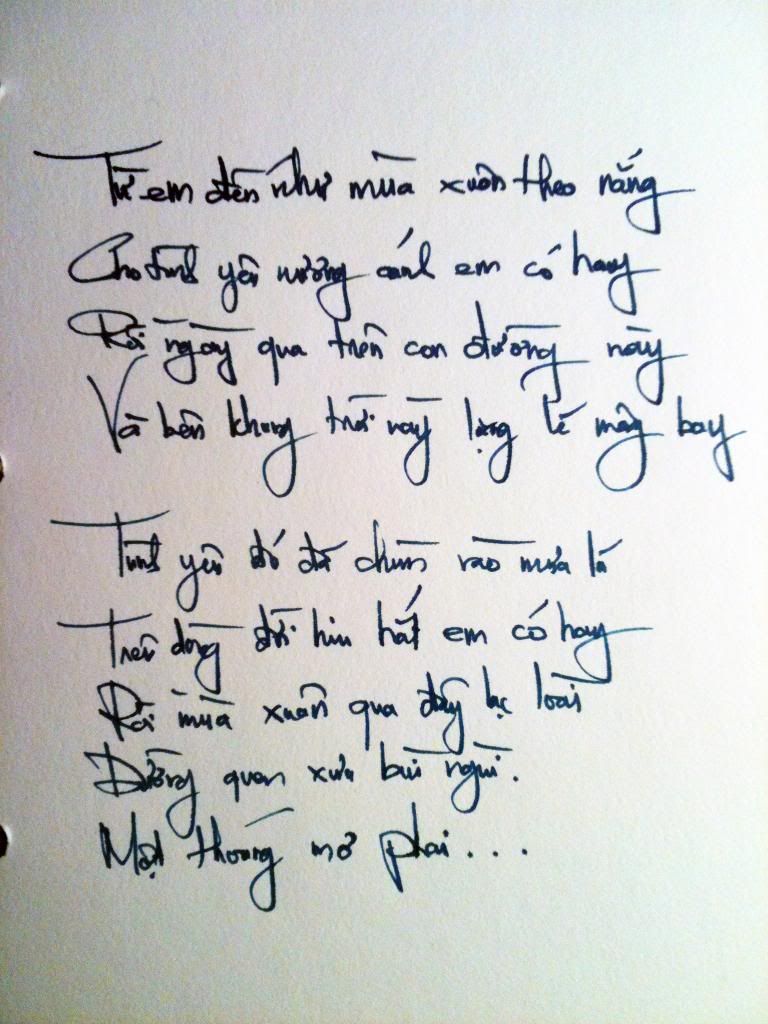 Từ em đến như mùa xuân theo nắng
Cho tình yêu nương cánh em có hay
Rồi ngày qua trên con đường này
Và bên khung trời này lặng lẽ mây bay
Tình yêu đó đã chìm vào mưa lá
Trên dòng đời hiu hắt em có hay
Rồi mùa xuân qua đây lạc loài
Đường quen xưa bùi ngùi.
Một thoáng mơ phai...